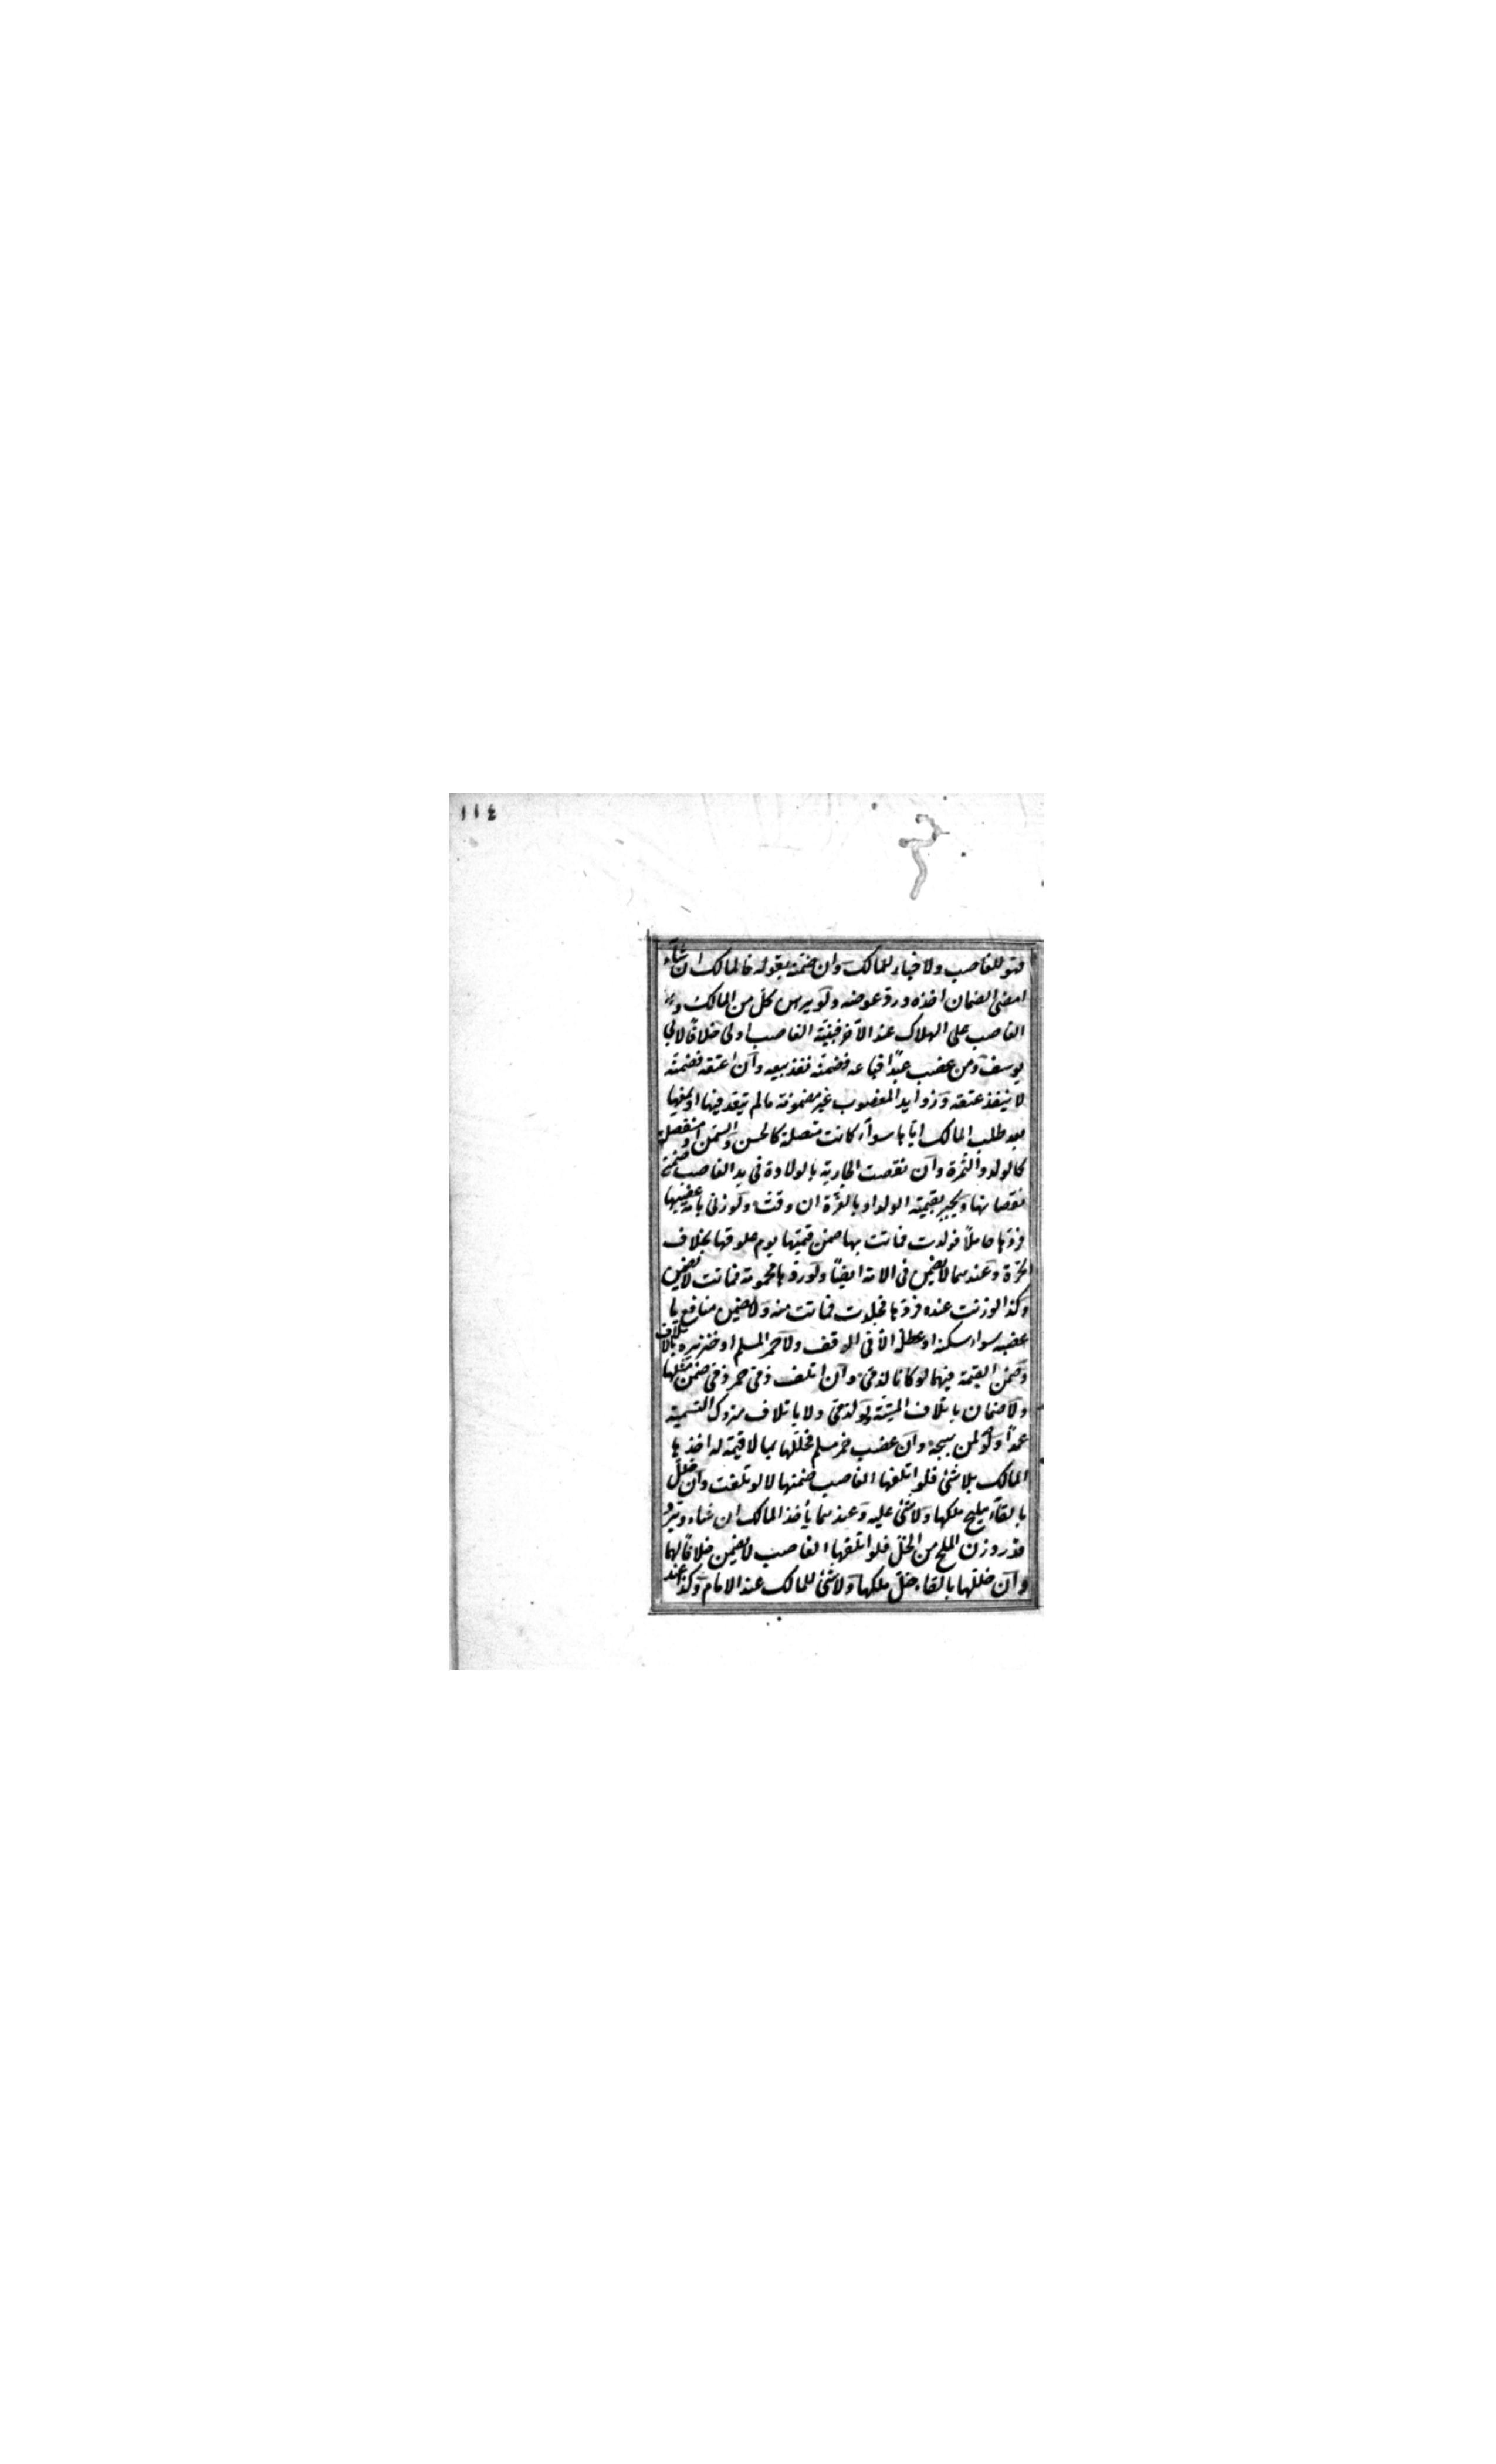 ١١٤
فهو للغاصب ولا خيار للمالك وان ضمنه بقوله فالمالك ان شاء
امضى الضمان او اخذه ورد عوضه ولو برهن كل من المالك و
الغاصب على الهلاك عند الآخر فبينة الغاصب اولى خلافا لابي
يوسف ومن غصب عبدا فباعه فضمنه نفذ بيعه وان اعتقه فضمنه
لا ينفذ عتقه وزوايد المغصوب غير مضمونة مالم يتعد فيها او يمنعها
بعد طلب المالك اياها سواء كانت متصلة كالحسن والسمن او منفصلة
كالولد والثمرة وان نقصت الجارية بالولادة في يد الغاصب ضمن
نقصانها ويجبر بقيمة الولد او بالغرة ان وفت ولو زنى بامة غصبها
فردها حاملا فولدت فماتت بها ضمن قيمتها يوم علوقها بخلاف
الحرة وعندهما لا يضمن في الامة ايضا ولو ردها محمومة فماتت لا يضمن
وكذا لو زنت عنده فردها فجلدت فماتت منه ولا يضمن منافع ما
غصبه سواء سكنه او عطله الا في الوقف ولا خمر المسلم او خنزيره بالاتلاف
وضمن القيمة فيهما لو كانا لذمي وان اتلف ذمي خمر ذمي ضمن مثلها
ولا ضمان باتلاف الميتة ولو لذمي ولا باتلاف متروك التسمية
عمدا ولو لمن يبيحه وان غصب خمر مسلم فخللها بما لا قيمة له اخذها
المالك بلا شئ فلو اتلفها الغاصب ضمنها لا لو تلفت وان خلل
بالقاء ملح ملكها ولا شئ عليه وعندهما يأخذ المالك ان شاء ويرد
قدر وزن الملح من الخل فلو اتلفها الغاصب لا يضمن خلافا لهما
وان خللها بالقاء خل ملكها ولا شئ للمالك عند الامام وكذا عند